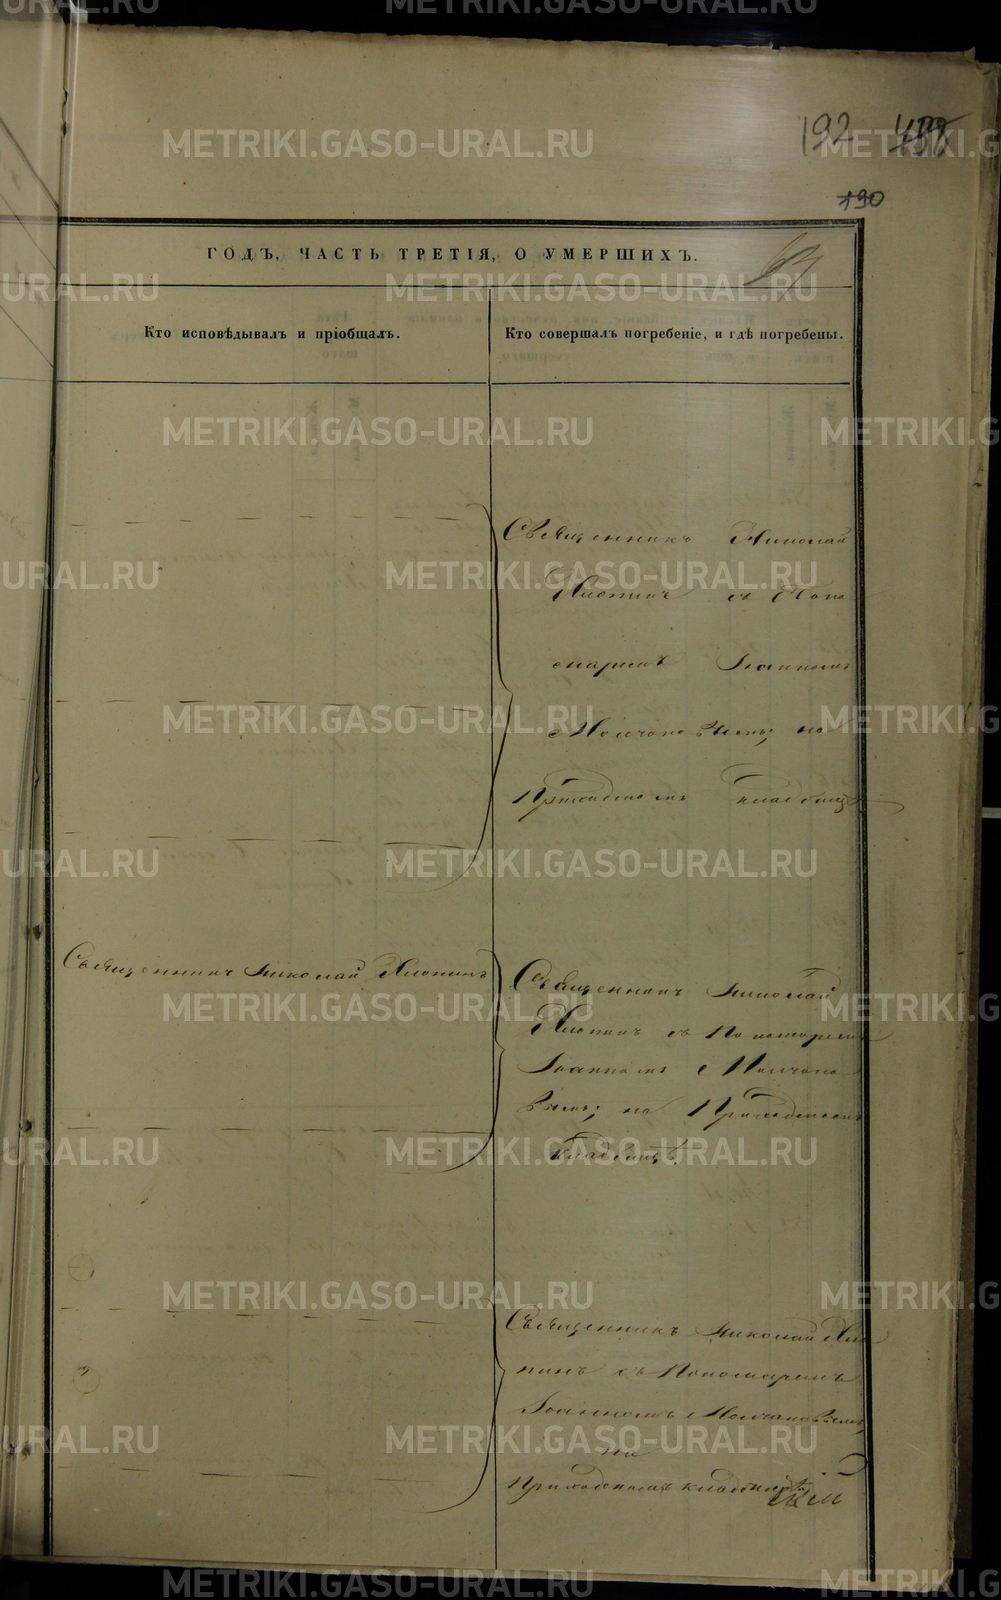 METRIKI.GASO-URAL.RU
192
190
ГОДЪ, ЧАСТЬ ТРЕТІЯ, О УМЕРШИХЪ.
Кто исповѣдывалъ и пріобщалъ.
Кто совершалъ погребеніе, и гдѣ погребены.
Священникъ Николай
Хлопинъ съ Поно
маремъ Іоанномъ
Молчановымъ; на
Приходскомъ кладбищѣ
Священникъ Николай Хлопинъ
Священникъ Николай
Хлопинъ съ Пономаремъ
Іоанномъ Молчано
вымъ; на Приходскомъ
кладбищѣ.
Священникъ Николай Хло
пинъ съ Пономаремъ
Іоанномъ Молчановымъ,
на
Приходскомъ кладбищѣ